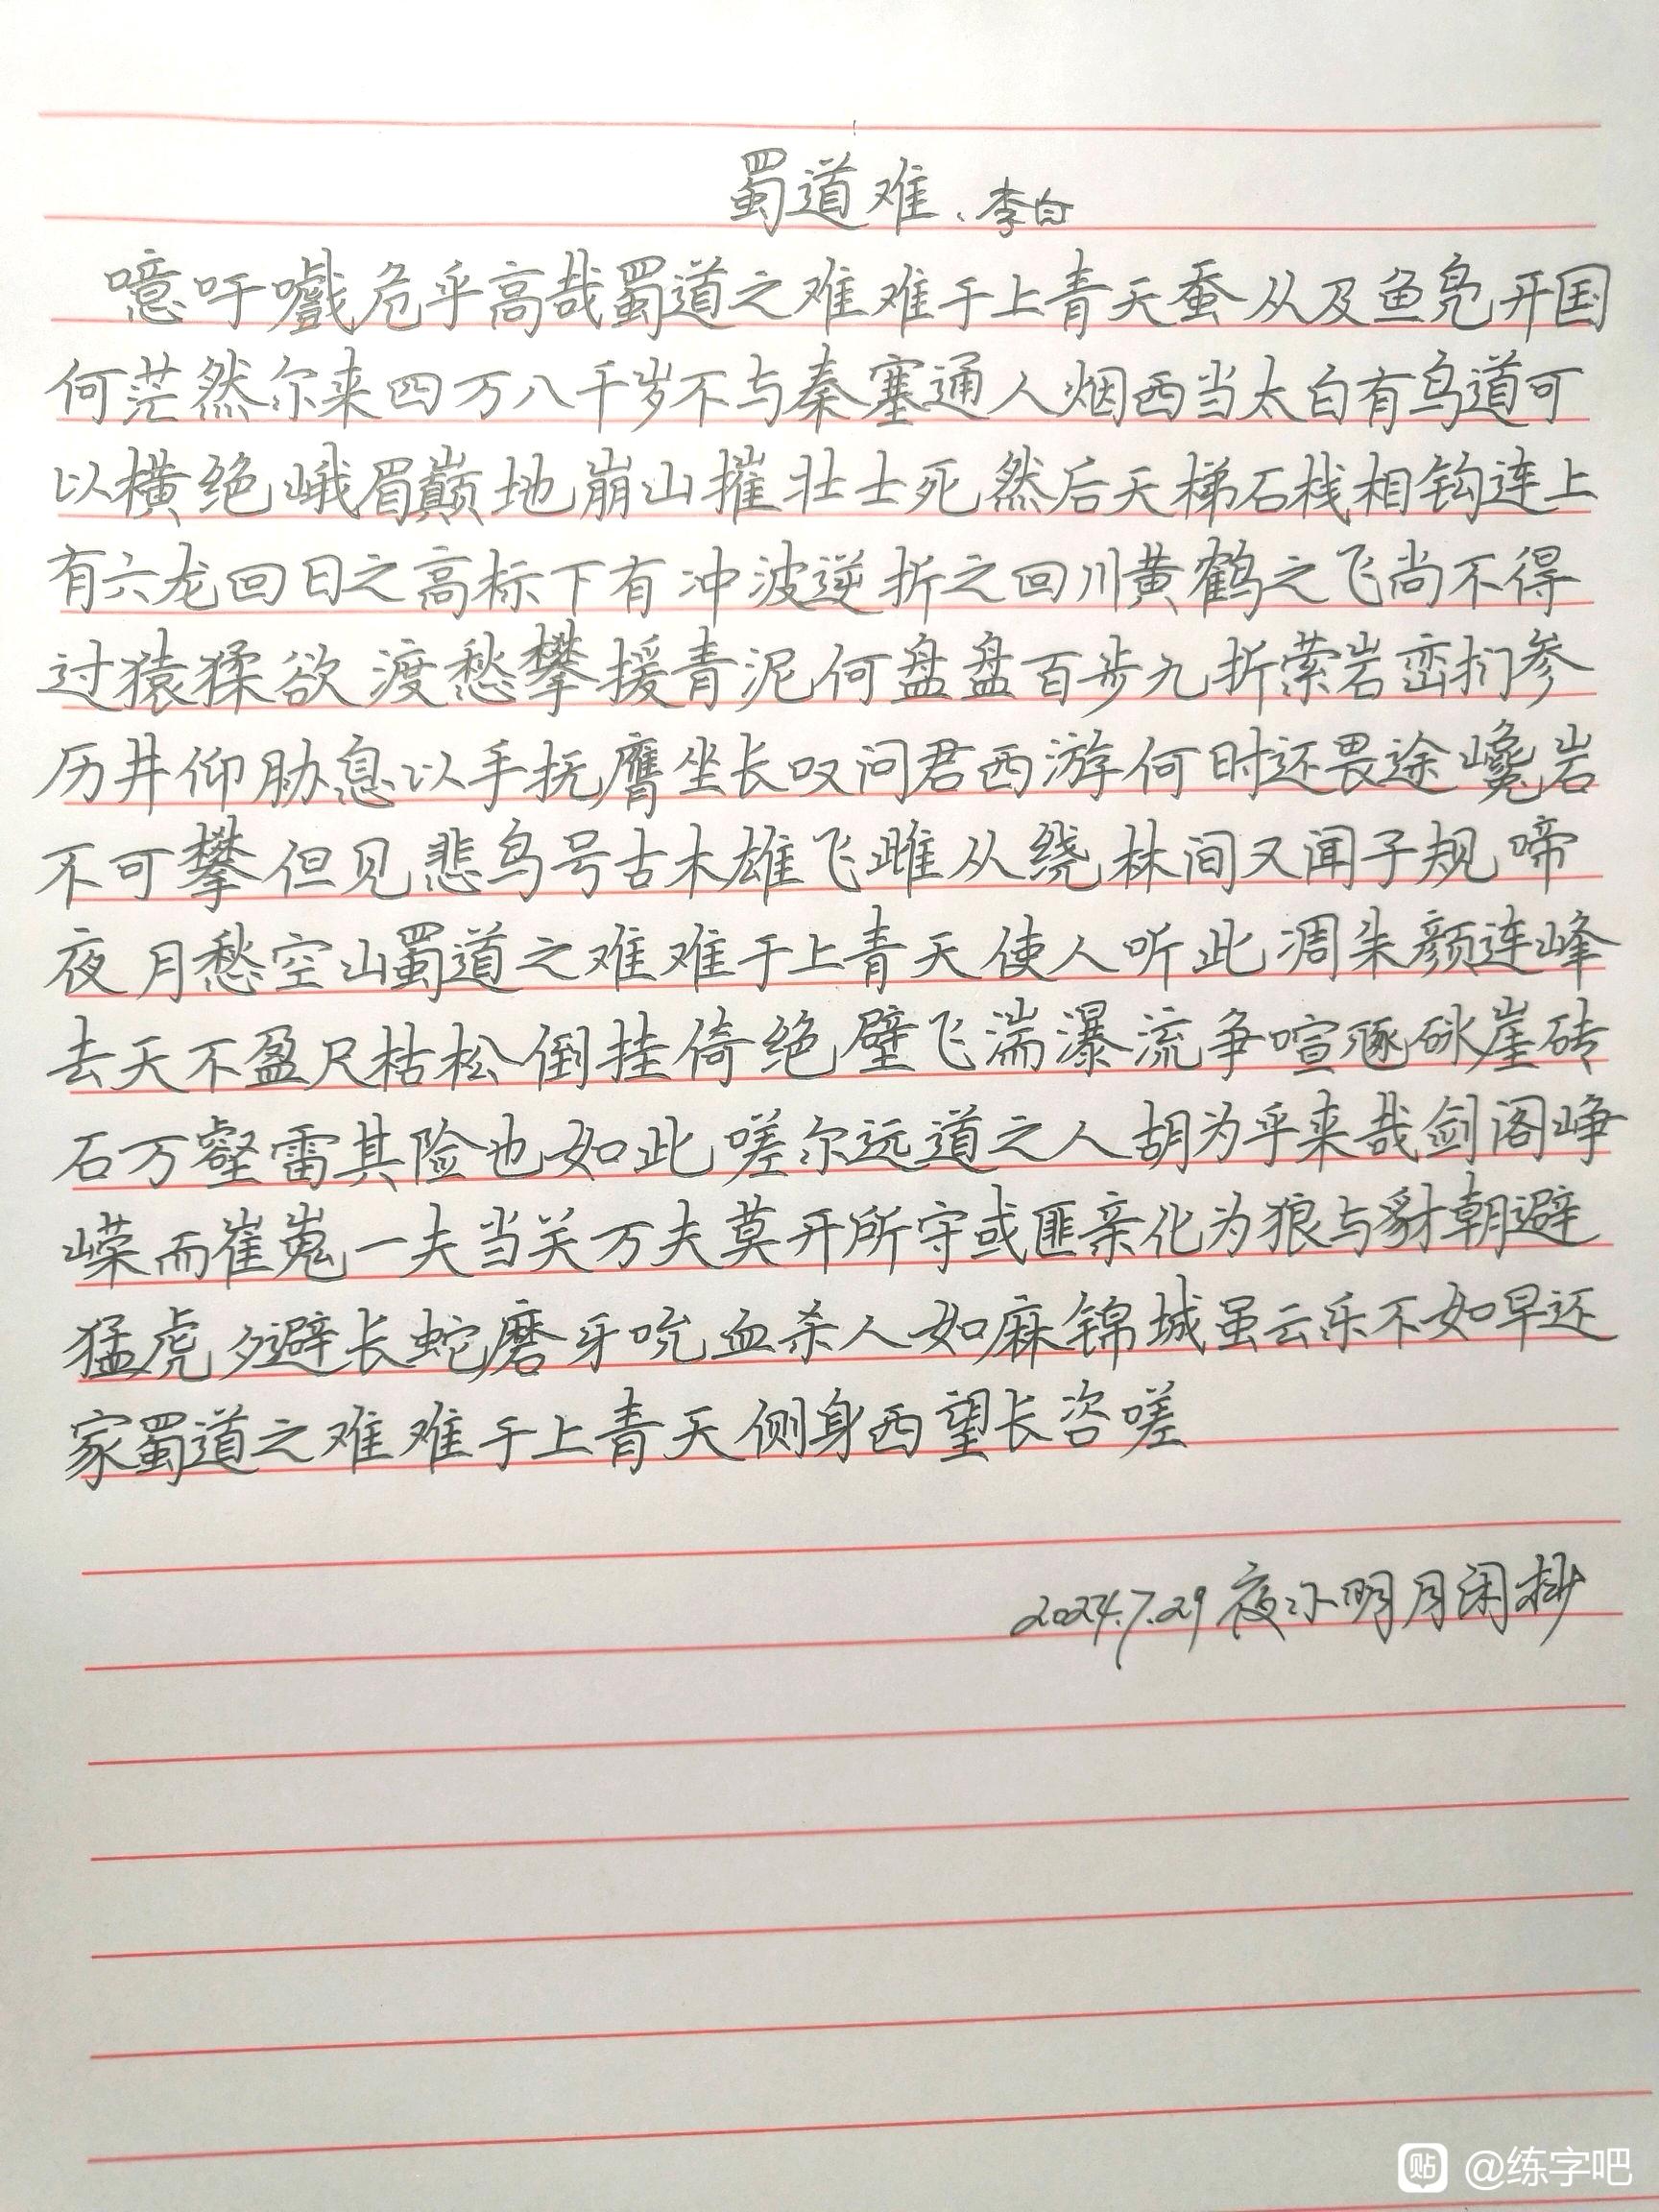 蜀道难、李白
噫吁嚱危乎高哉蜀道之难难于上青天蚕从及鱼凫开国
何茫然尔来四万八千岁不与秦塞通人烟西当太白有鸟道可
以横绝峨眉巅地崩山摧壮士死然后天梯石栈相钩连上
有六龙回日之高标下有冲波逆折之回川黄鹤之飞尚不得
过猿猱欲渡愁攀援青泥何盘盘百步九折萦岩峦扪参
历井仰胁息以手抚膺坐长叹问君西游何时还畏途巉岩
不可攀但见悲鸟号古木雄飞雌从绕林间又闻子规啼
夜月愁空山蜀道之难难于上青天使人听此凋朱颜连峰
去天不盈尺枯松倒挂倚绝壁飞湍瀑流争喧豗砯崖砖
石万壑雷其险也如此嗟尔远道之人胡为乎来哉剑阁峥
嵘而崔嵬一夫当关万夫莫开所守或匪亲化为狼与豺朝避
猛虎夕避长蛇磨牙吮血杀人如麻锦城虽云乐不如早还
家蜀道之难难于上青天侧身西望长咨嗟
2024.7.29夜小明月闲抄
贴 @练字吧